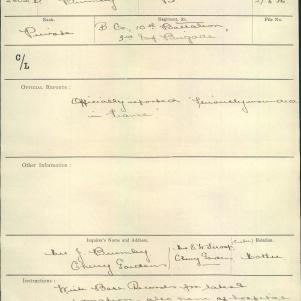 Rank.
Regiment, &c.
File No
Private
B Co, 10th Battalion
3rd Inf Brigade
C/L
OFFICIAL REPORTS:
Officially reported "seriously wounded
in France"
Other Information:
Inquirer's Name and Address.
Relation.
Mrs J. Brumby
Cherry Gardens
Mrs E. W.
Cherry Gardens
Mother
Instructions:
Write Base Records for latest
also name of hospital